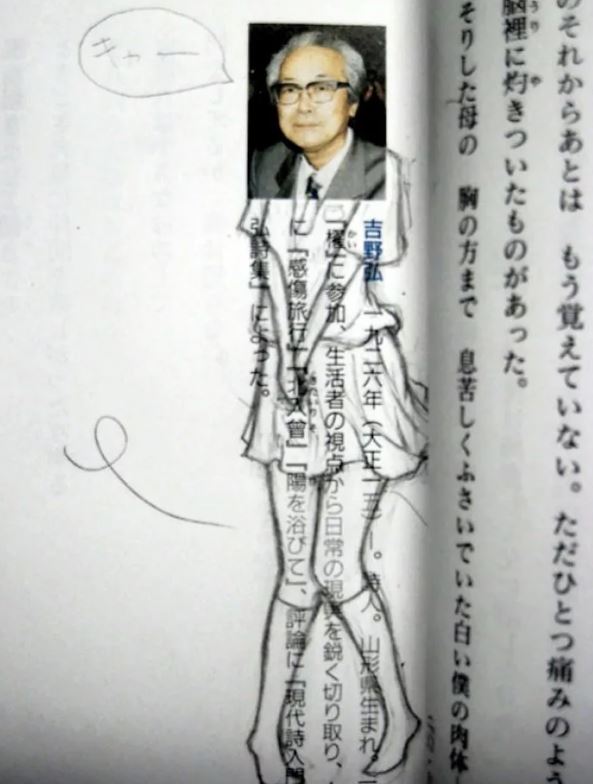 のそれからあとは　もう覚えていない。ただひとつ痛みのよう
脳裡に灼きついたものがあった。
そりした母の　胸の方まで　息苦しくふさいでいた白い僕の肉体
吉野弘　一九二六年（大正一五）―。詩人。山形県生まれ。
「櫂」に参加、生活者の視点から日常の現実を鋭く切り取り、
に「感傷旅行」「北入曽」「陽を浴びて」、評論に「現代詩入門
弘詩集」によった。
キャー